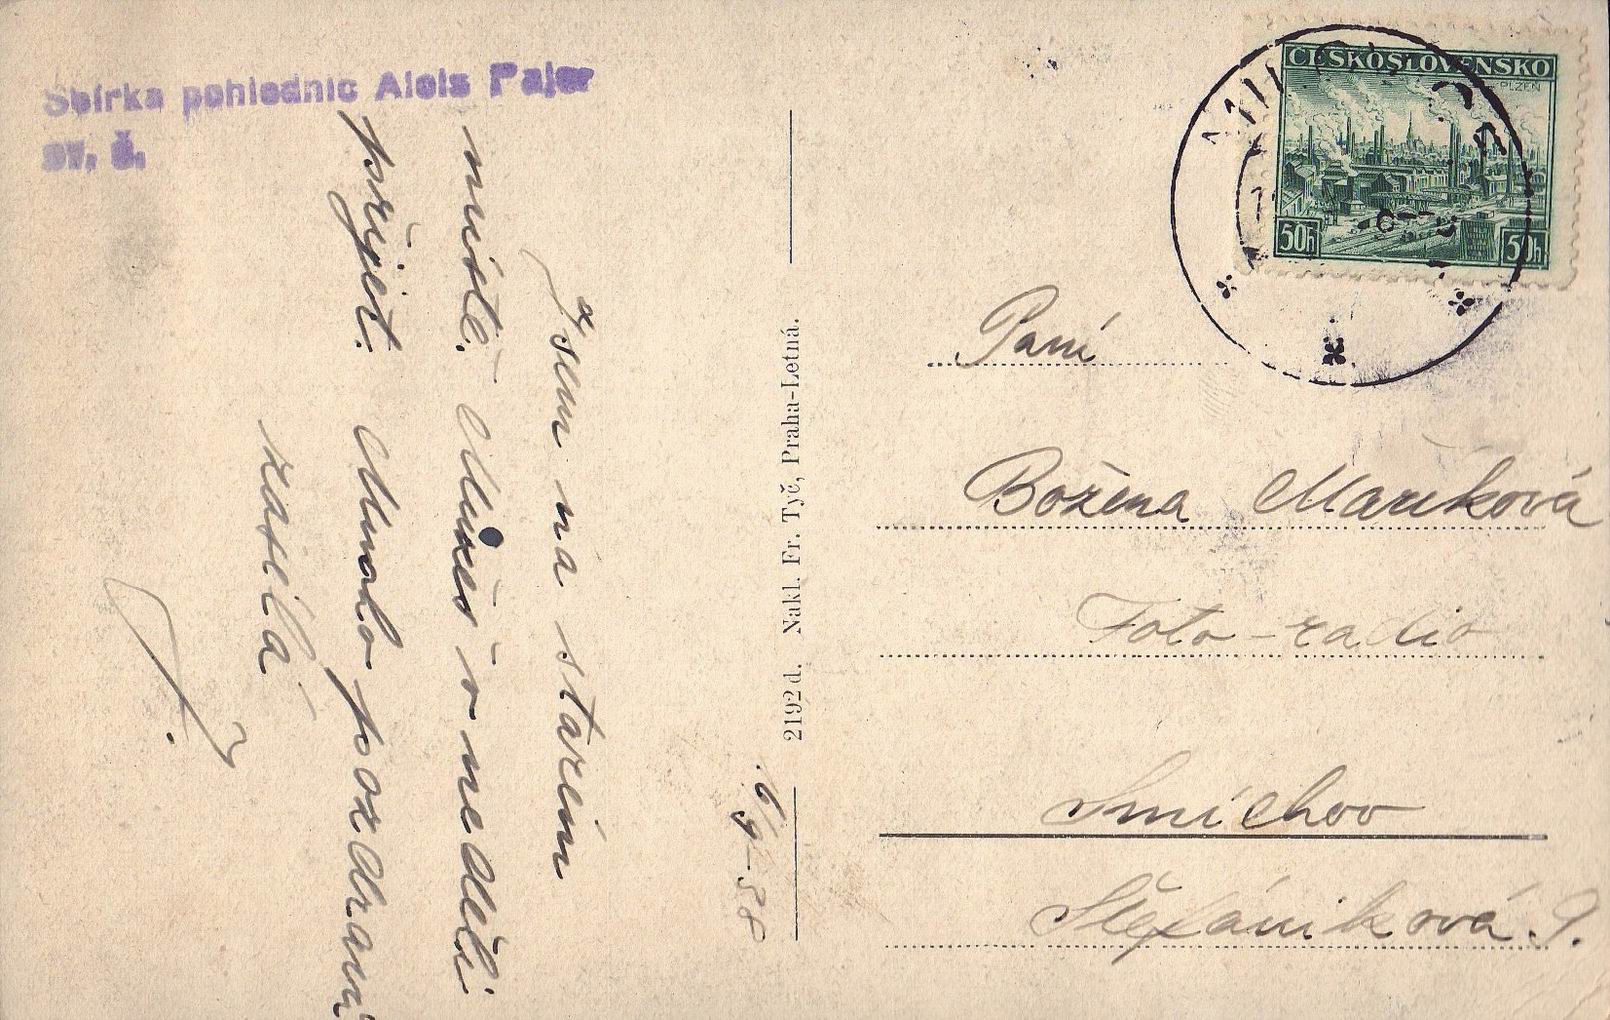 Sbírka pohlednic Alois Pajer
ev. č.
Jsem na starém
místě. Můžeš v neděli
přijet. Mnoho pozdravů
zasílá
J.
6/9-38
2192d. Nakl. Fr. Tyč, Praha-Letná.
ČESKOSLOVENSKO
PLZEŇ
50h 50h
Paní
Božena Maríková
Foto-radio
Smíchov
Štefániková 9.